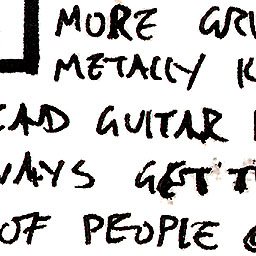 MORE GRU
METALLY K
EAD GUITAR
WAYS GET T
OF PEOPLE